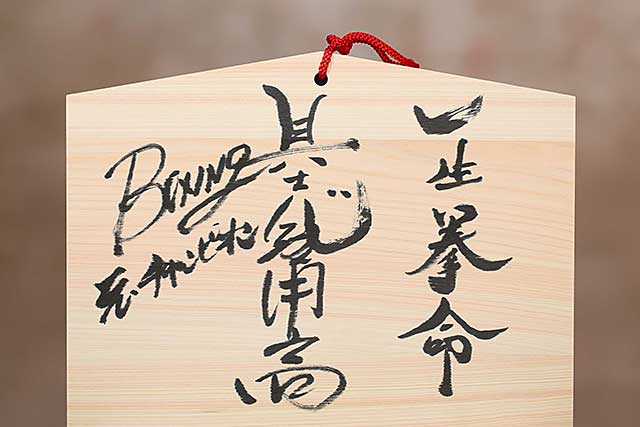 一生拳命
具志堅用高
Boxing
元チャンピオン